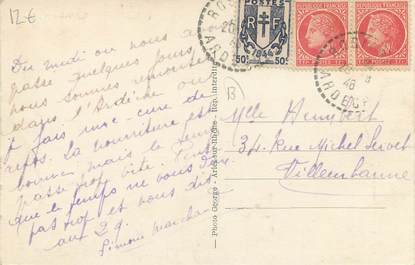 12€
Du midi où nous a
passé quelques jours
nous sommes
dans l'Ardèche où
je fais une cure de
repos. La nourriture est
bonne mais le temps
passe trop vite.
que le temps ne vous dure
pas trop et nous dis
aux 2 g.
Simone
Photo George - Arles-sur-Rhône - Rep. interdite
13
Mlle Humbert
34 Rue Michel Servet
Villeurbanne
POSTES
RF
50c
1944
50c
RÉPUBLIQUE FRANÇAISE
RÉPUBLIQUE FRANÇAISE
46
RHONE